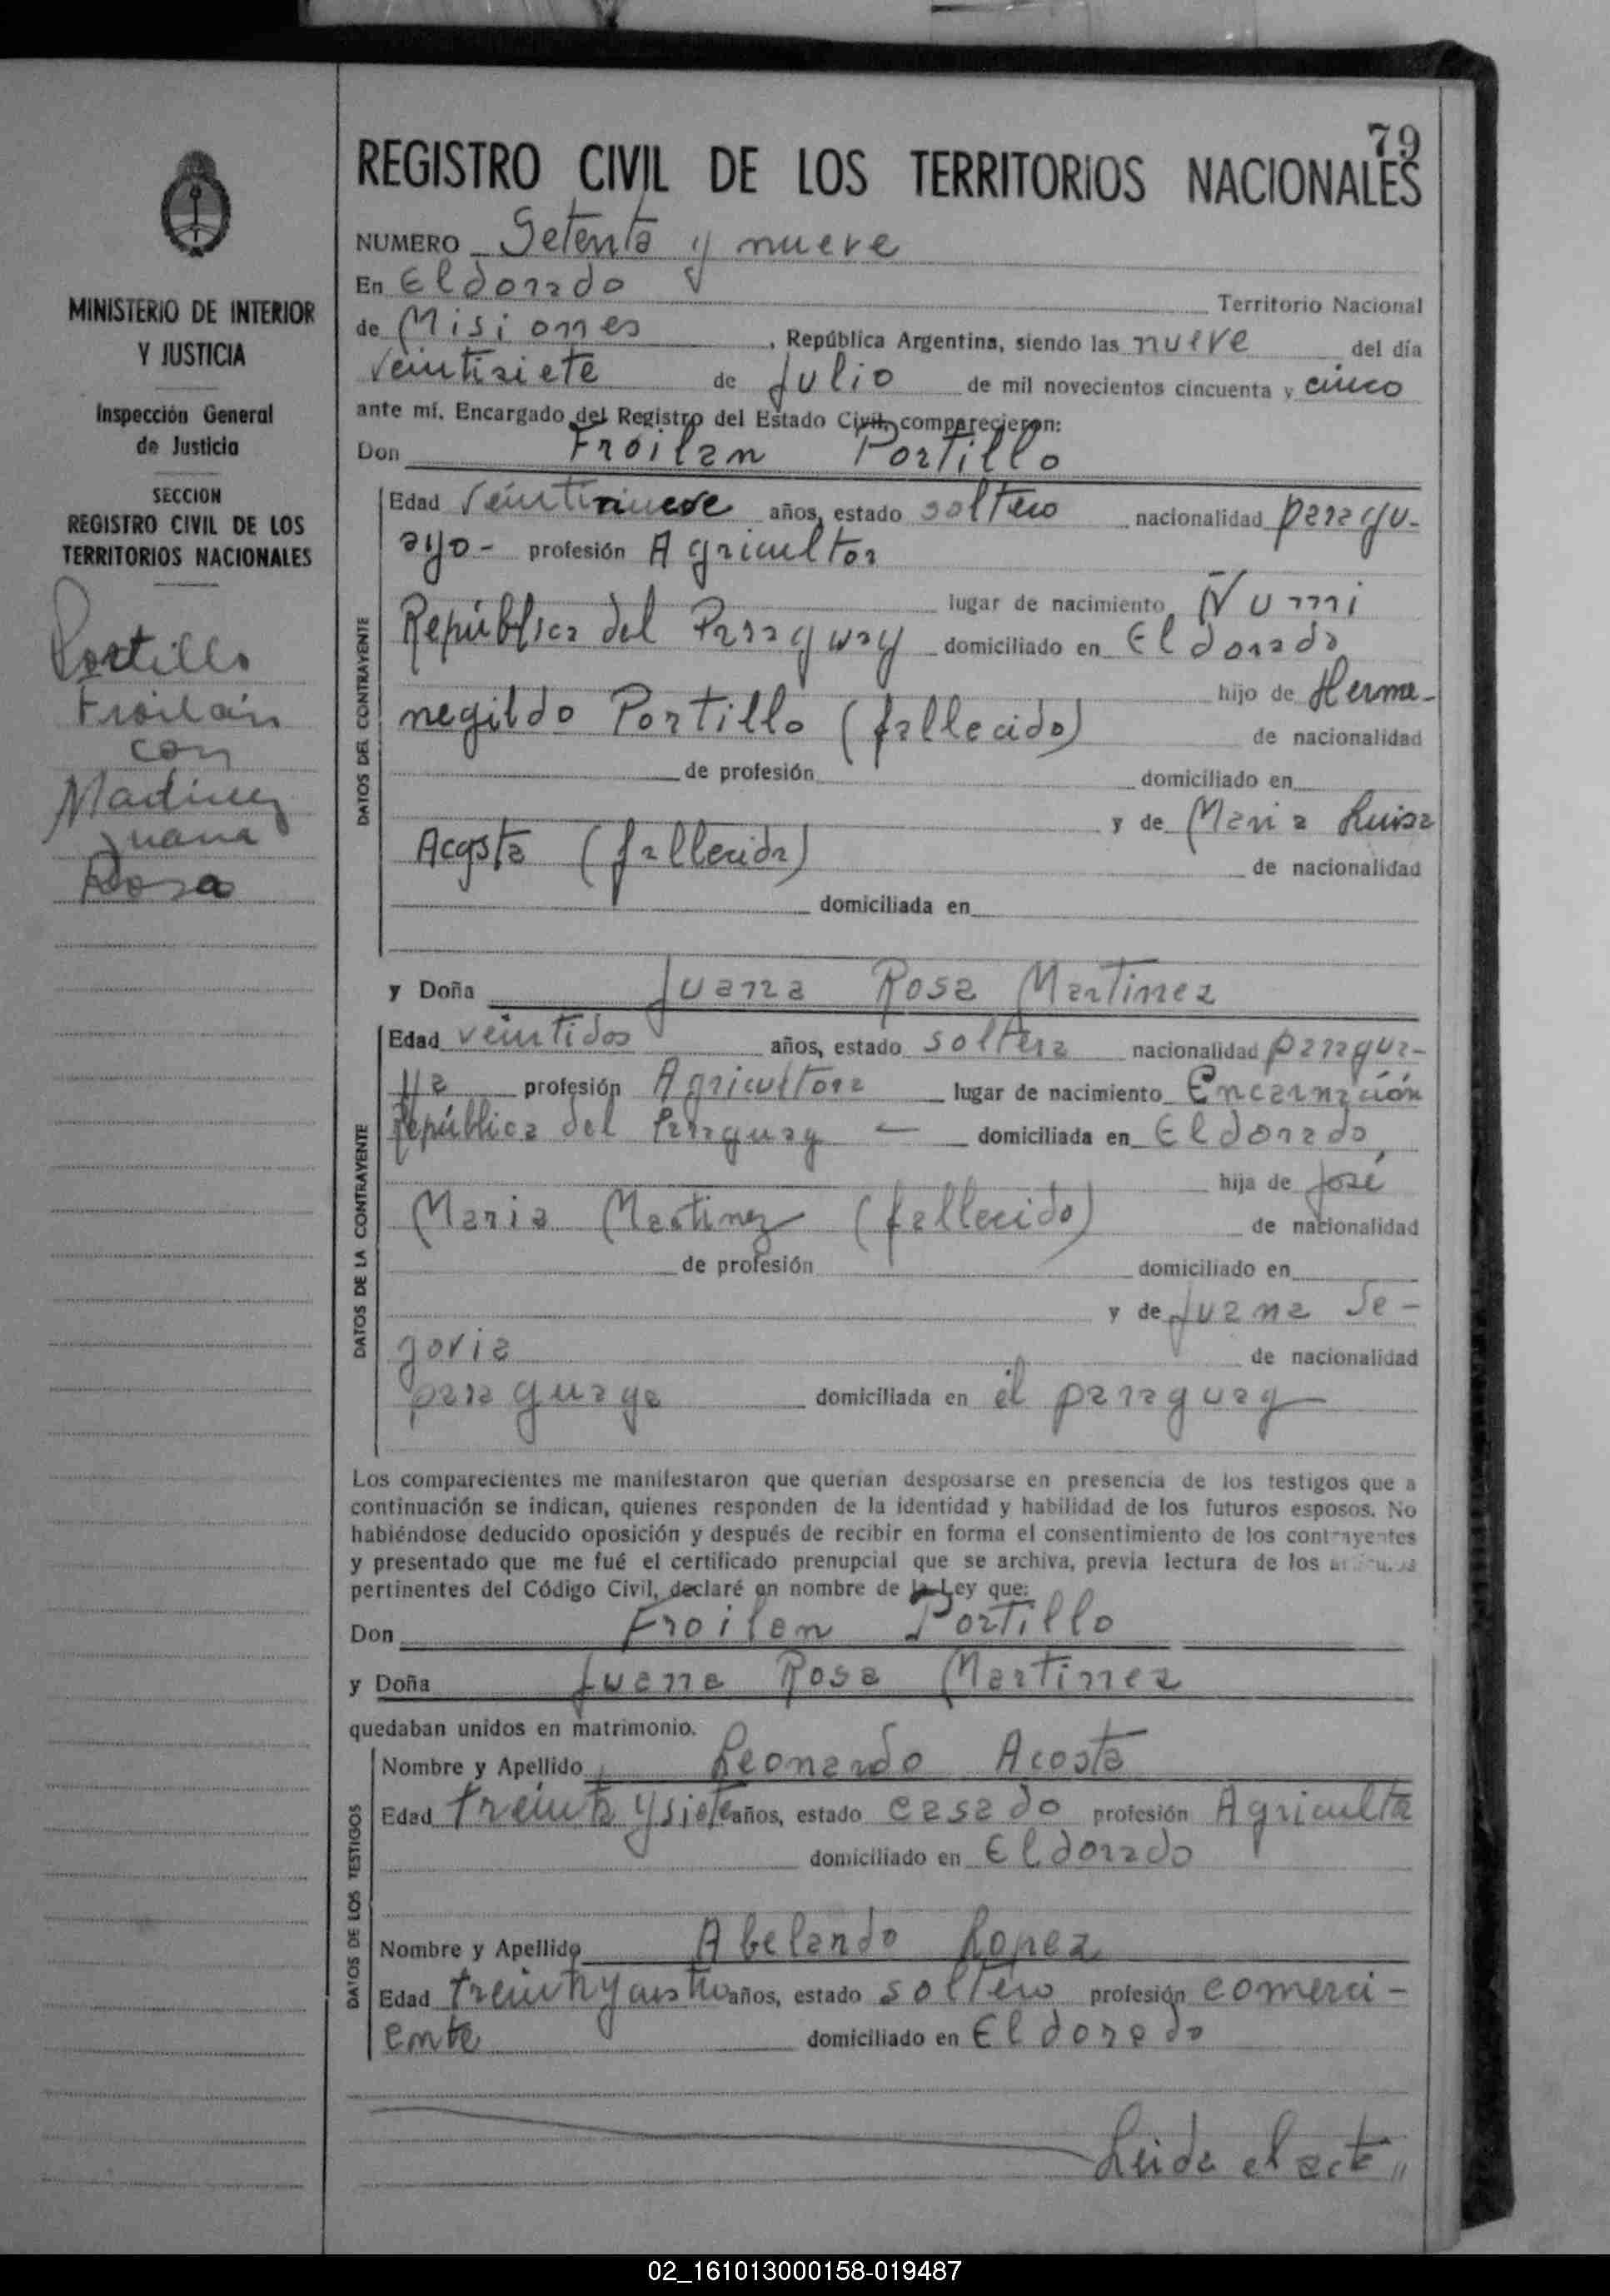 79
REGISTRO CIVIL DE LOS TERRITORIOS NACIONALES
NUMERO Setenta y nueve
En Eldorado Territorio Nacional
de Misiones, República Argentina, siendo las nueve del día
veintisiete de Julio de mil novecientos cincuenta y cinco
ante mí, Encargado del Registro del Estado Civil, comparecieron:
Don Froilan Portillo
DATOS DEL CONTRAYENTE
Edad veintinueve años, estado soltero nacionalidad paragu-
ayo- profesión Agricultor
lugar de nacimiento Ñumi
República del Paraguay domiciliado en Eldorado
hijo de Herme-
negildo Portillo (fallecido) de nacionalidad
de profesión domiciliado en
y de Maria Luisa
Acosta (fallecida) de nacionalidad
domiciliada en
y Doña Juana Rosa Martinez
DATOS DE LA CONTRAYENTE
Edad veintidos años, estado soltera nacionalidad paragua-
ya profesión Agricultora lugar de nacimiento Encarnación
República del Paraguay — domiciliada en Eldorado
hija de José
Maria Martinez (fallecido) de nacionalidad
de profesión domiciliado en
y de Juana Se-
govia de nacionalidad
paraguaya domiciliada en el paraguay
Los comparecientes me manifestaron que querían desposarse en presencia de los testigos que a
continuación se indican, quienes responden de la identidad y habilidad de los futuros esposos. No
habiéndose deducido oposición y después de recibir en forma el consentimiento de los contrayentes
y presentado que me fué el certificado prenupcial que se archiva, previa lectura de los
pertinentes del Código Civil, declaré en nombre de la Ley que:
Don Froilan Portillo
y Doña Juana Rosa Martinez
quedaban unidos en matrimonio.
DATOS DE LOS TESTIGOS
Nombre y Apellido Leonardo Acosta
Edad treinta y siete años, estado casado profesión Agriculto
domiciliado en Eldorado
Nombre y Apellido Abelardo Lopez
Edad treinta y años, estado soltero profesión comerci-
ante domiciliado en Eldorado
Leida el acta "
MINISTERIO DE INTERIOR
Y JUSTICIA
Inspección General
de Justicia
SECCION
REGISTRO CIVIL DE LOS
TERRITORIOS NACIONALES
Portillo
Froilán
con
Martinez
Juana
Rosa
02_161013000158-019487